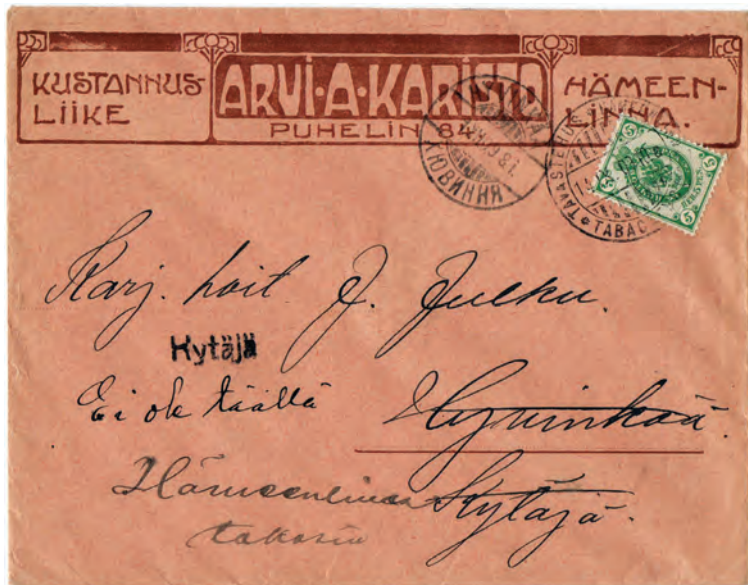 KUSTANNUS-
LIIKE
ARVI·A·KARISTO
PUHELIN 84
HÄMEEN-
LINNA.
ХЮВИНКЯ
TAVASTEHUS
5 5
5 5
Karj. hoit J. Julku.
Kytäjä
Ei ole täällä
Hyvinkää.
Hämeenlinna
Kytäjä.
takasin